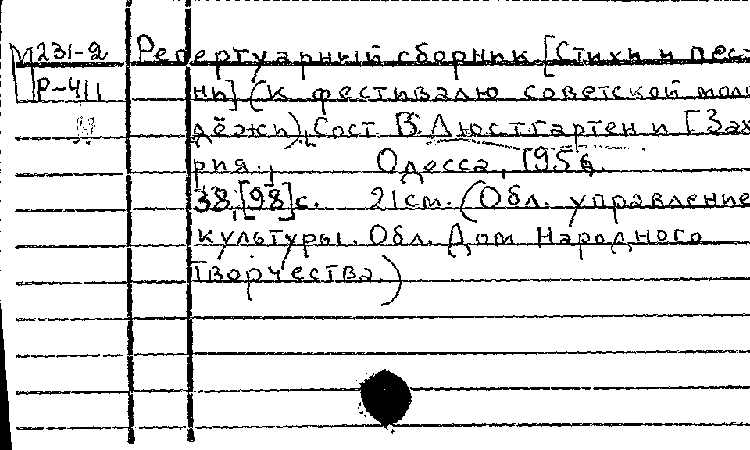 М231-2 Репертуарный сборник [Стихи и пес-
Р-411 ни] (К фестивалю советской моло
дёжи). Сост. В. Люстгартен и [Зах
рия. Одесса, 1956.
38,[98]с. 21см. (Обл. управление
культуры. Обл. Дом Народного
Творчества.)